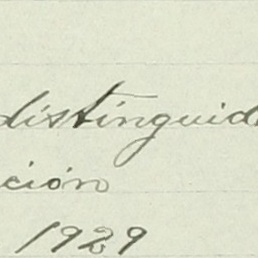 distinguid
ción
1929